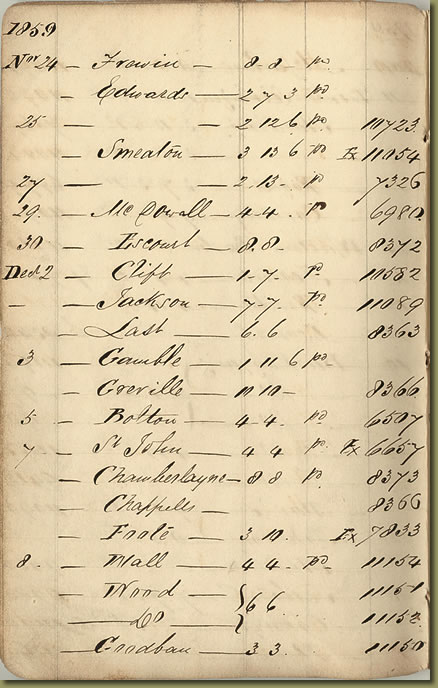 1859
Novr 24 — Frewin — 8 - 8 pd
— Edwards — 2 7 3 pd
25 — — 2 12 6 pd 10723
— Smeaton — 3 13 6 pd Ex 11054
27 — — 2 - 13 - p 7326
29 — McDowall — 4 - 4 . P 6980
30 — Escourt — 8 . 8 - 8372
Decr 2 — Clift — 1 - 7 . pd 10582
— — Jackson — 7 - 7 . pd 11089
— Last — 6 . 6 8363
3 — Gamble — 1 11 6 pd
— Greville — 10 10 — 8366
5 — Bolton — 4 4 . pd 6507
7 — St John — 4 4 pd Ex 6657
— Chamberlayne — 8 8 pd 8373
— Chappells — 8366
— Foote — 3 10 . Ex 7833
8 . — Hall — 4 4 . pd 11154
— Wood — } 6 6 . 11151
— Do — 11152
— Goodban — 3 3 . 11150